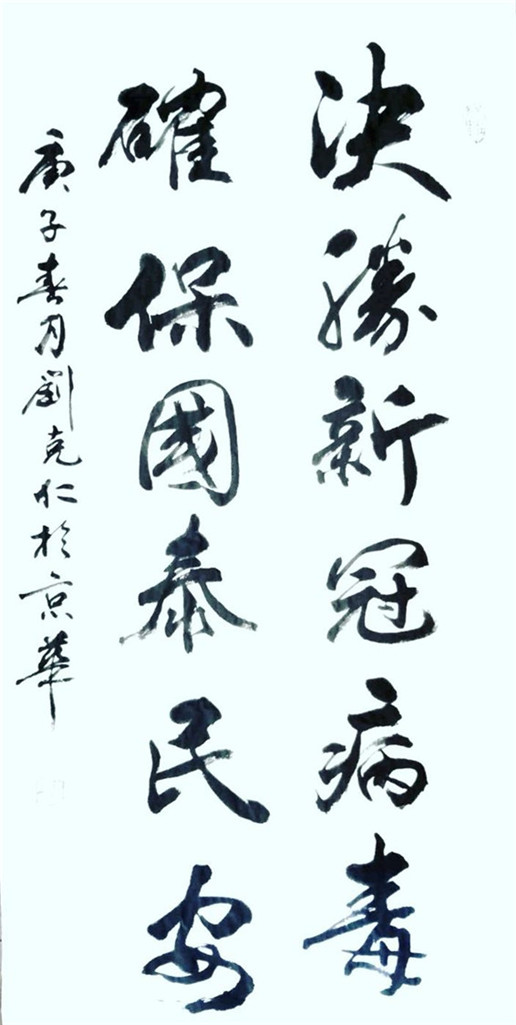 決勝新冠病毒
確保國泰民安
庚子春月劉克仁於京華